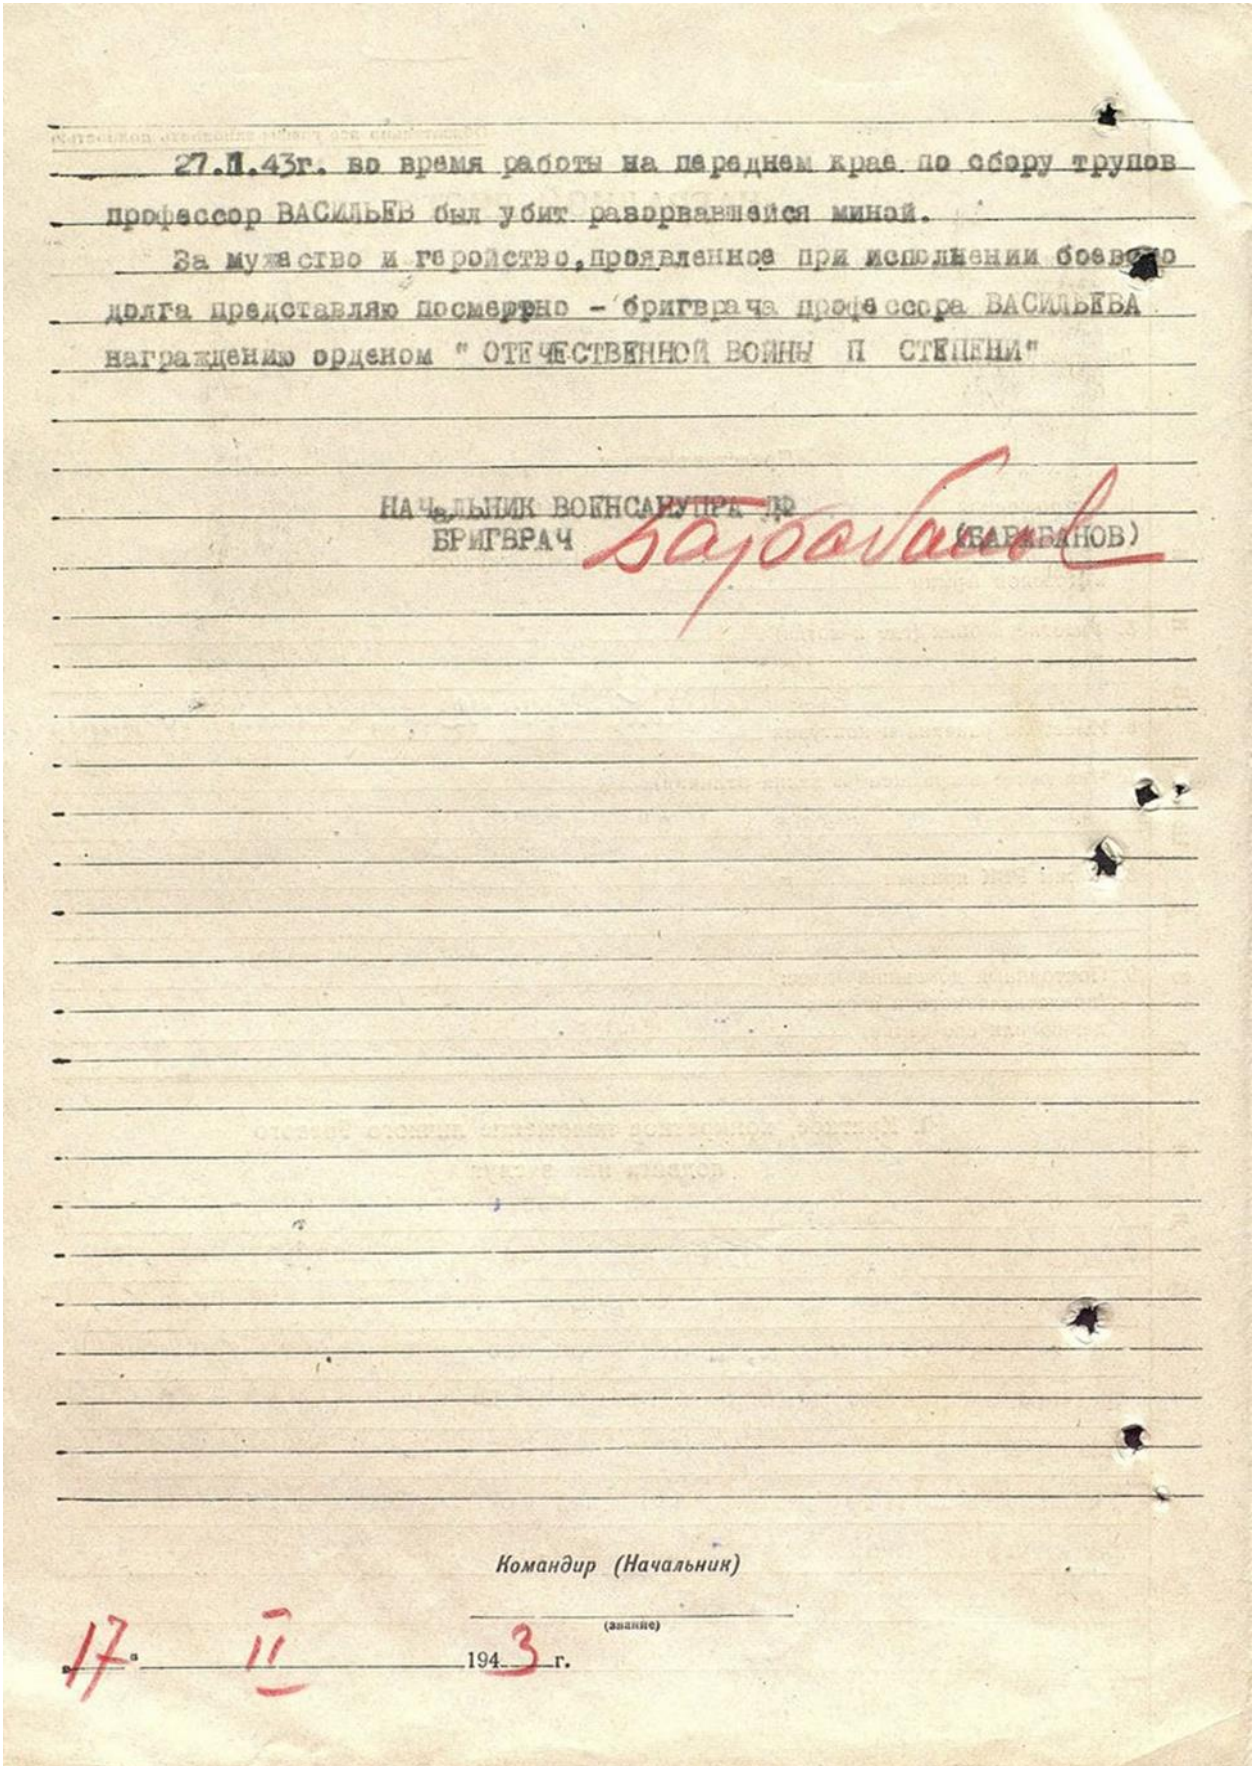 27.I.43г. во время работы на переднем крае по сбору трупов
профессор ВАСИЛЬЕВ был убит разорвавшейся миной.
За мужество и геройство, проявленное при исполнении боевого
долга представляю посмертно - бригврача профессора ВАСИЛЬЕВА
награждению орденом " ОТЕЧЕСТВЕННОЙ ВОЙНЫ П СТЕПЕНИ"
НАЧаЛЬНИК ВОЕНСАНУПРА ДФ
БРИГВРАЧ Барабанов (БАРАБАНОВ)
Командир (Начальник)
(звание)
"17" II 1943 г.